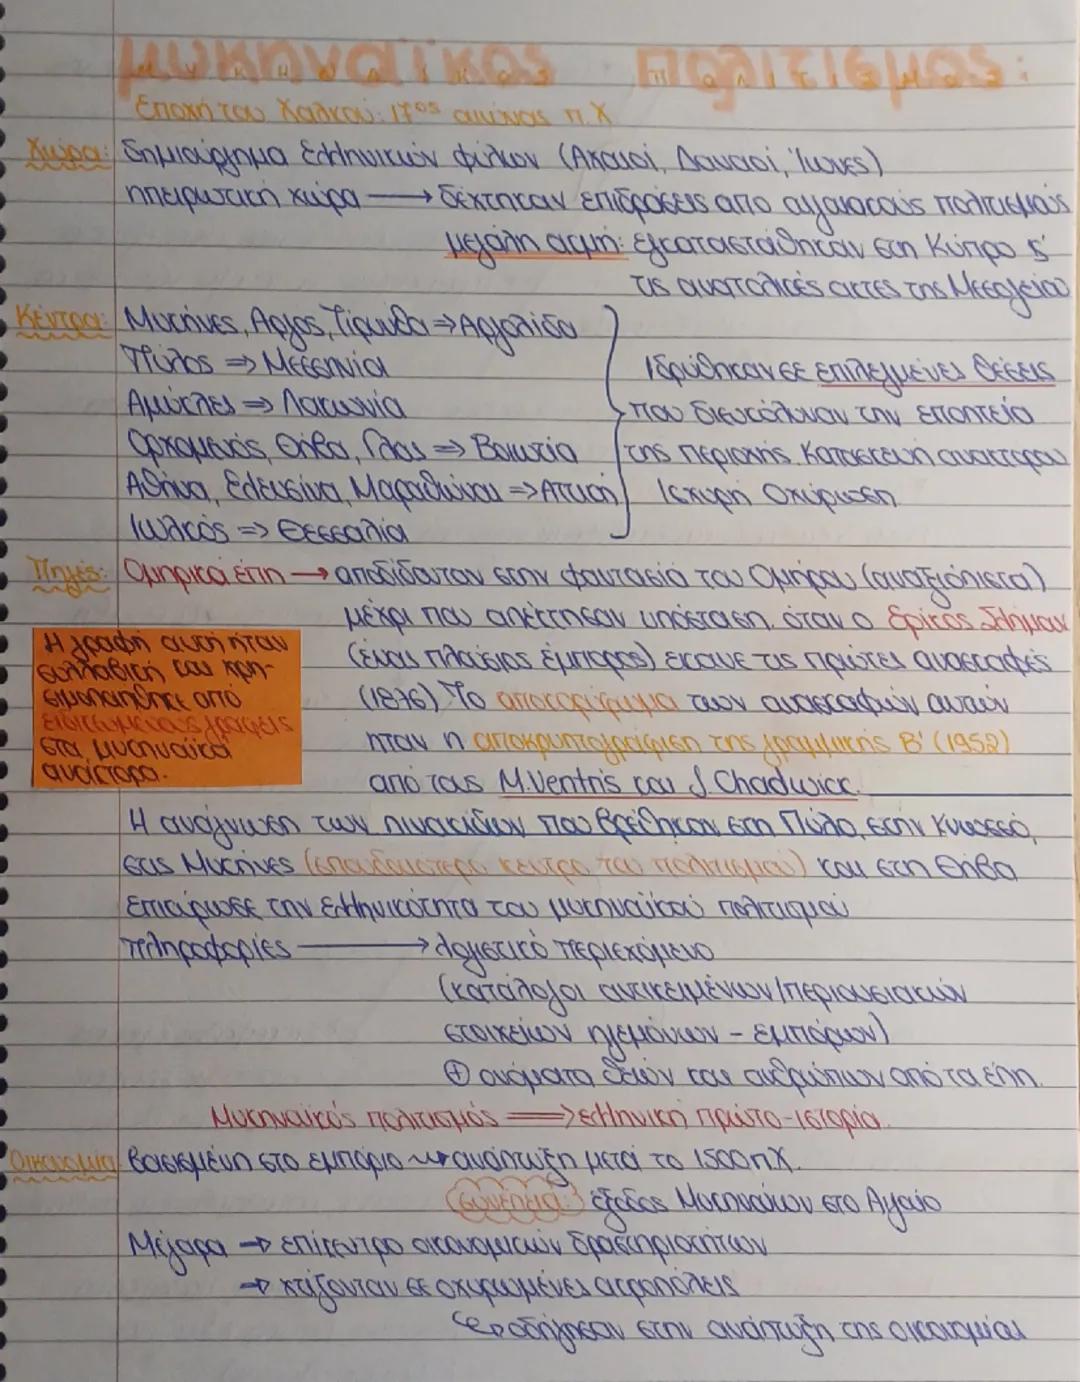 μυκηναϊκός πολιτισμός:
Εποχή του Χαλκού: 17ος αιώνας π.Χ
Χώρα: δημιούργημα ελληνικών φύλων (Αχαιοί, Δαναοί, Ίωνες)
ηπειρωτική χώρα → δέχτηκαν επιδράσεις από αιγαιακούς πολιτισμούς
μεγάλη ακμή: εγκαταστάθηκαν στη Κύπρο &
τις ανατολικές ακτές της Μεσογείου
Κέντρα: Μυκήνες, Άργος, Τίρυνθα ⇒ Αργολίδα
Πύλος ⇒ Μεσσηνία
Ιδρύθηκαν σε επιλεγμένες θέσεις
Αμύκλες ⇒ Λακωνία
που διευκόλυναν την εποπτεία
Ορχομενός, Θήβα, Γλας ⇒ Βοιωτία
της περιοχής. Κατασκευή ανακτόρου
Αθήνα, Ελευσίνα, Μαραθώνας ⇒ Αττική
Ισχυρή Οχύρωση
Ιωλκός ⇒ Θεσσαλία
Πηγές: Ομηρικά έπη → αποδίδονταν στην φαντασία του Ομήρου (αναξιόπιστα)
μέχρι που απέκτησαν υπόσταση, όταν ο Ερίκος Σλήμαν
(ένας πλούσιος έμπορος) έκανε τις πρώτες ανασκαφές
(1876) Το αποκορύφωμα των ανασκαφών αυτών
ήταν η αποκρυπτογράφιση της γραμμικής Β' (1952)
από τους M.Ventris και J.Chadwick.
Η γραφή αυτή ήταν
συλλαβική και χρη-
σιμοποιήθηκε από
ειδικευμένους γραφείς
στα μυκηναϊκά
ανάκτορα.
Η ανάγνωση των πινακίδων που βρέθηκαν στη Πύλο, στην Κνωσσό,
στις Μυκήνες (σπουδαιότερο κέντρο του πολιτισμού) και στη Θήβα
επικύρωσε την ελληνικότητα του μυκηναϊκού πολιτισμού
πληροφορίες → λογιστικό περιεχόμενο
(κατάλογοι αντικειμένων/περιουσιακών
στοιχείων ηγεμόνων - εμπόρων)
⊕ ονόματα θεών και ανθρώπων από τα έπη.
Μυκηναϊκός πολιτισμός ⇒ ελληνική πρώτο-ιστορία.
Οικονομία: βασισμένη στο εμπόριο ⇝ ανάπτυξη μετά το 1500π.Χ.
συνέπεια: έξοδος Μυκηναίων στο Αιγαίο
Μέγαρα → επίκεντρο οικονομικών δραστηριοτήτων
→ χτίζονταν σε οχυρωμένες ακροπόλεις
↳ οδήγησαν στην ανάπτυξη της οικονομίας